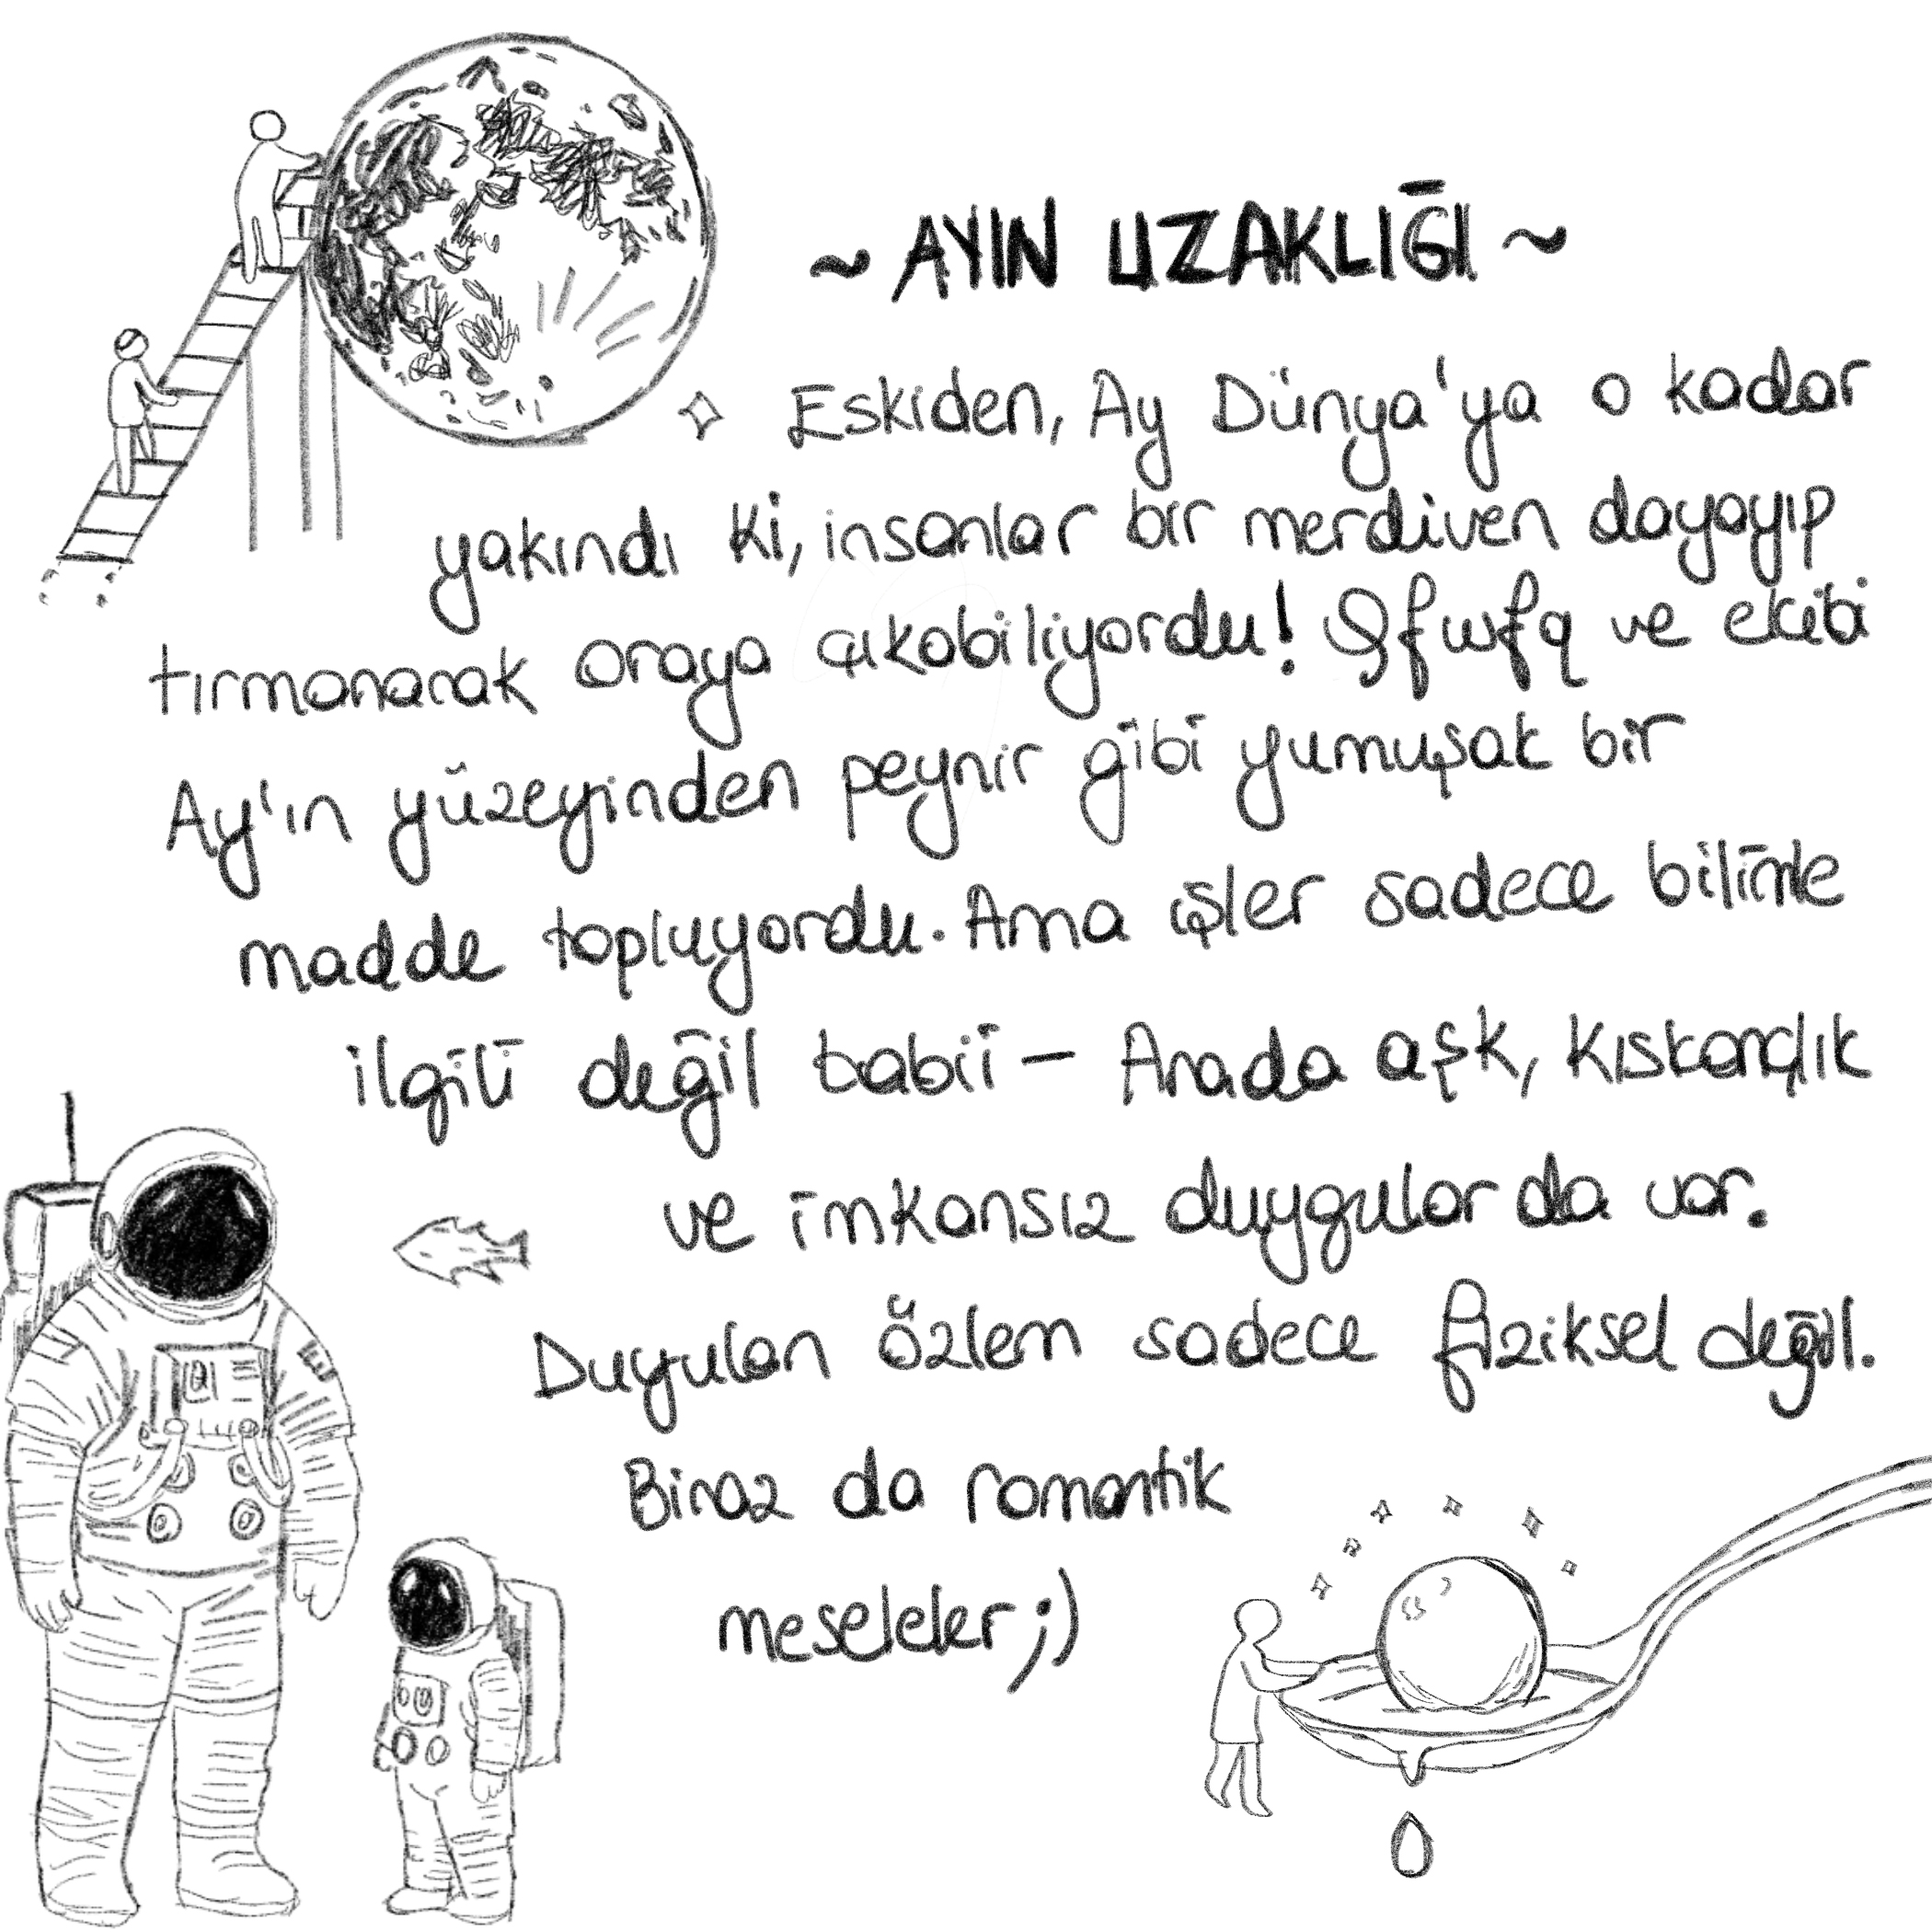 ~ AYIN UZAKLIĞI ~
Eskiden, Ay Dünya'ya o kadar
yakındı ki, insanlar bir merdiven dayayıp
tırmanarak oraya çıkabiliyordu! Qfwfq ve ekibi
Ay'ın yüzeyinden peynir gibi yumuşak bir
madde topluyordu. Ama işler sadece bilimle
ilgili değil tabii - Arada aşk, kıskançlık
ve imkansız duygular da var.
Duyulan özlem sadece fiziksel değil.
Biraz da romantik
meseleler ;)